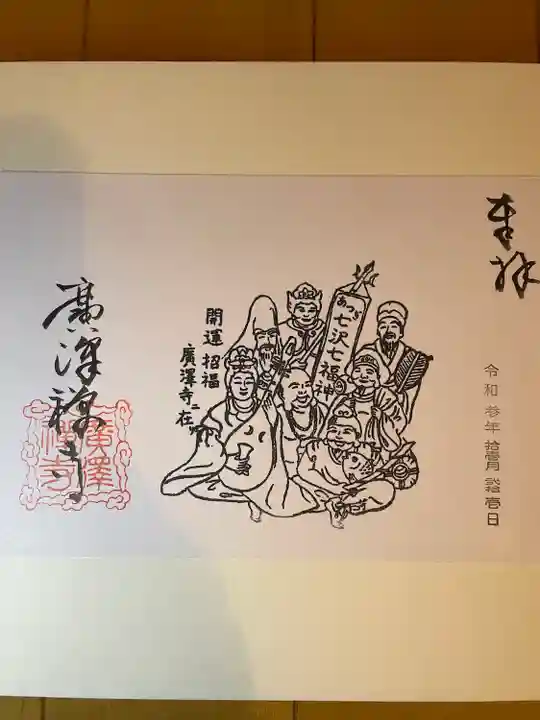 奉拝
令和 参年 拾壱月 弐拾壱日
あつぎ七沢七福神
開運 招福
廣澤寺在
廣澤禅寺
廣澤
禅寺